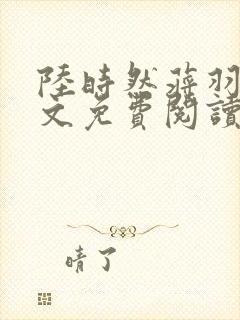 陸時然蒋羽
文免費閱讀
晴了